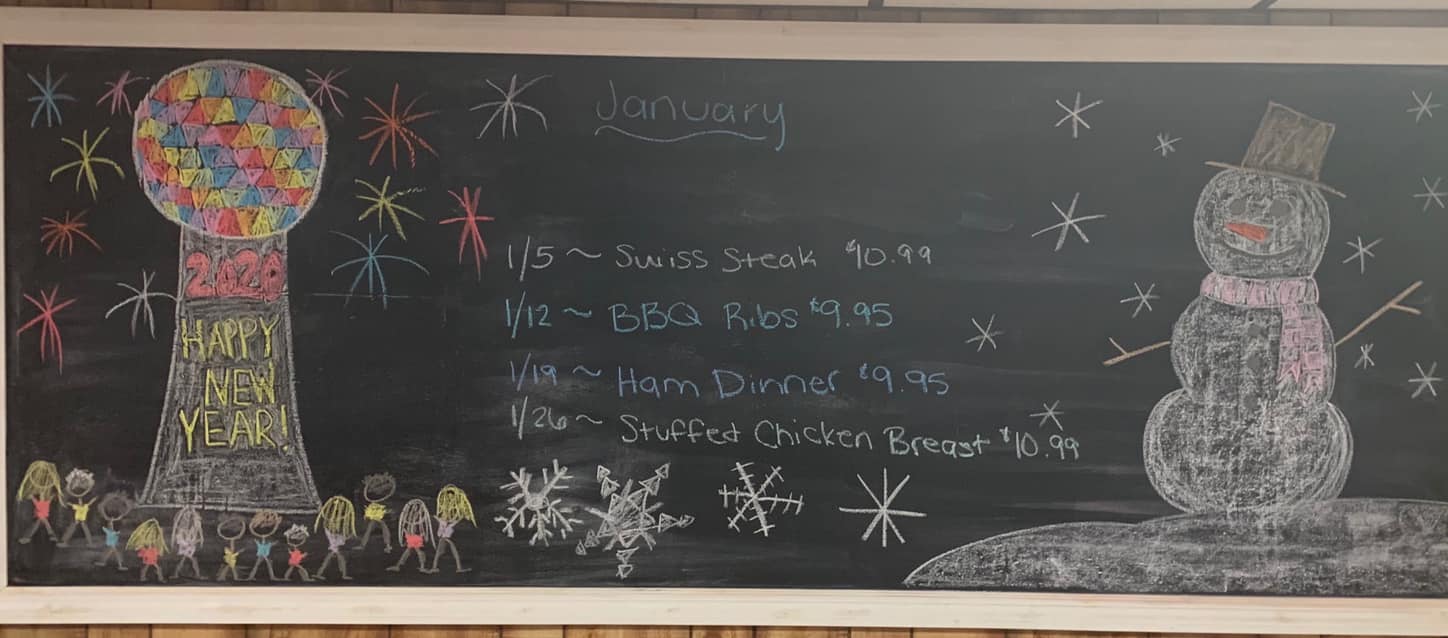 January
2020
HAPPY
NEW
YEAR!
1/5 ~ Swiss Steak $10.99
1/12 ~ BBQ Ribs $9.95
1/19 ~ Ham Dinner $9.95
1/26 ~ Stuffed Chicken Breast $10.99